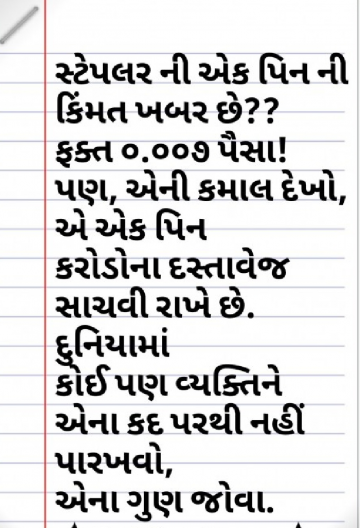 સ્ટેપલર ની એક પિન ની
કિંમત ખબર છે??
ફક્ત ૦.૦૦૭ પૈસા!
પણ, એની કમાલ દેખો,
એ એક પિન
કરોડોના દસ્તાવેજ
સાચવી રાખે છે.
દુનિયામાં
કોઈ પણ વ્યક્તિને
એના કદ પરથી નહીં
પારખવો,
એના ગુણ જોવા.